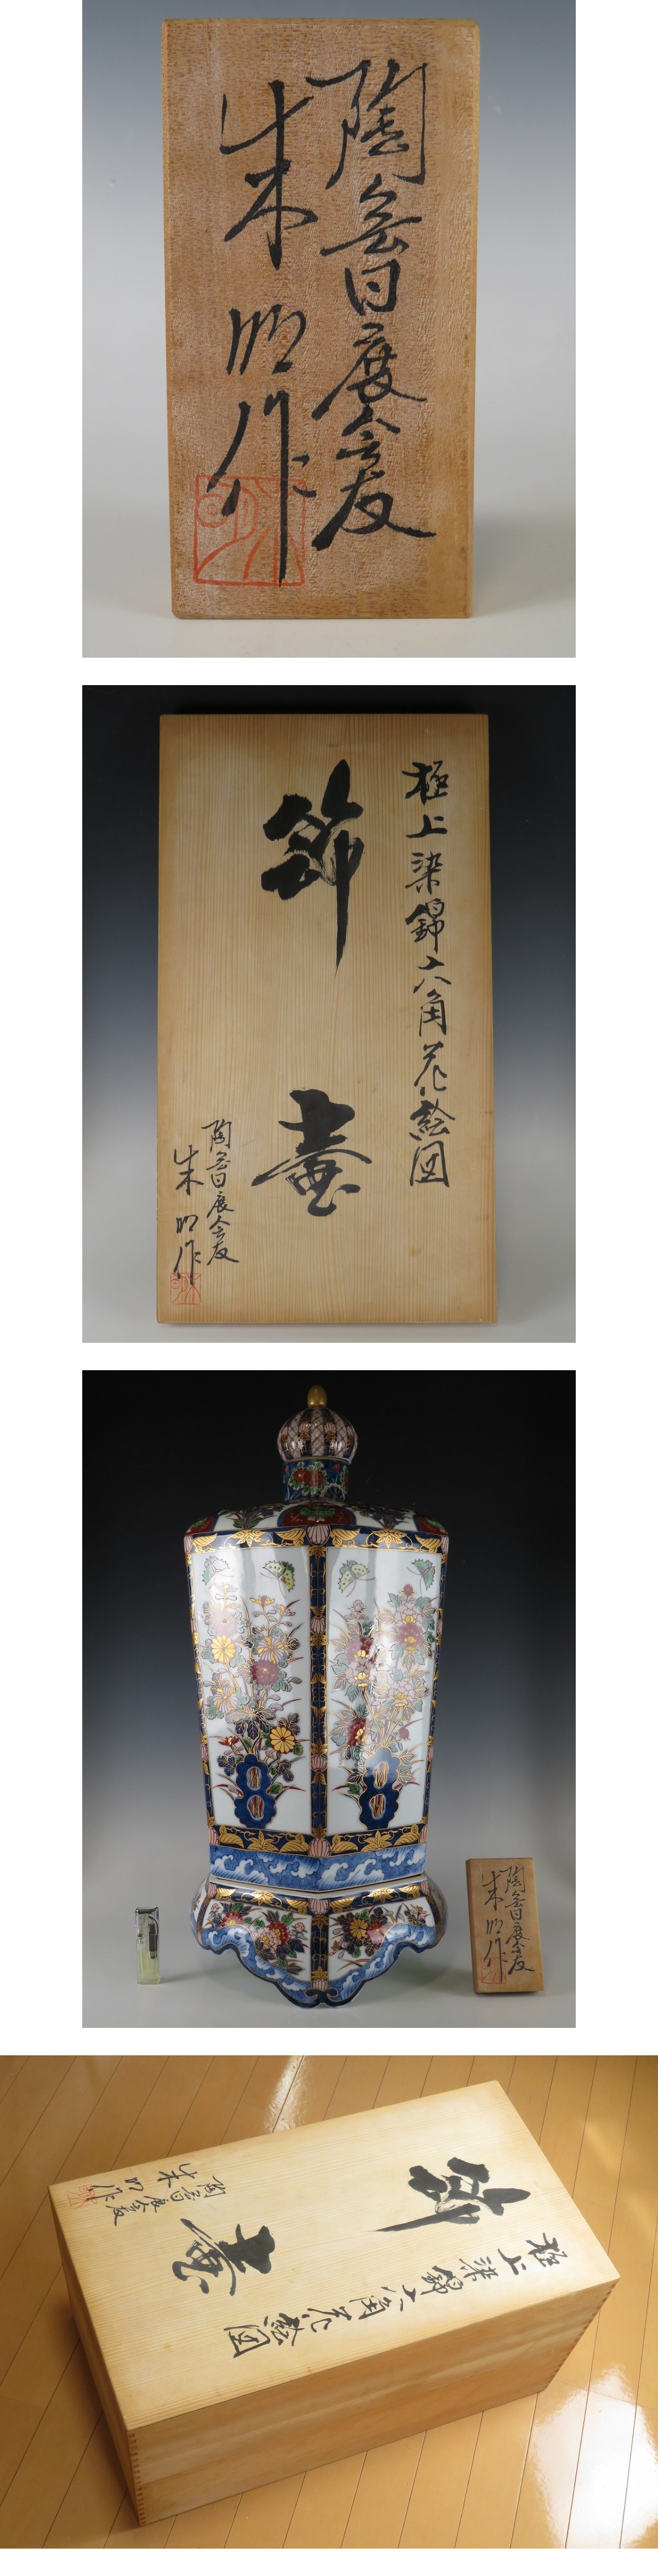 陶芸日展会友
朱明作
極上染錦六角花絵図
飾壷
陶芸日展会友
朱明作
陶芸日展会友
朱明作
極上染錦六角花絵図
飾壷
陶芸日展会友
朱明作